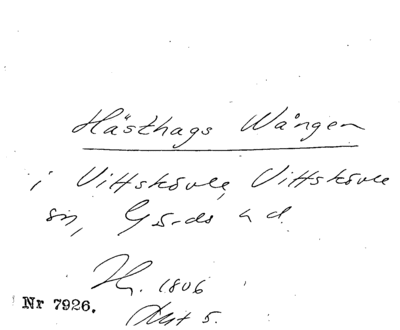 Hästhags Wången
i Vittskövle, Vittskövle
sn, Gärds hd.
1806
Nr 7926.
Akt 5.